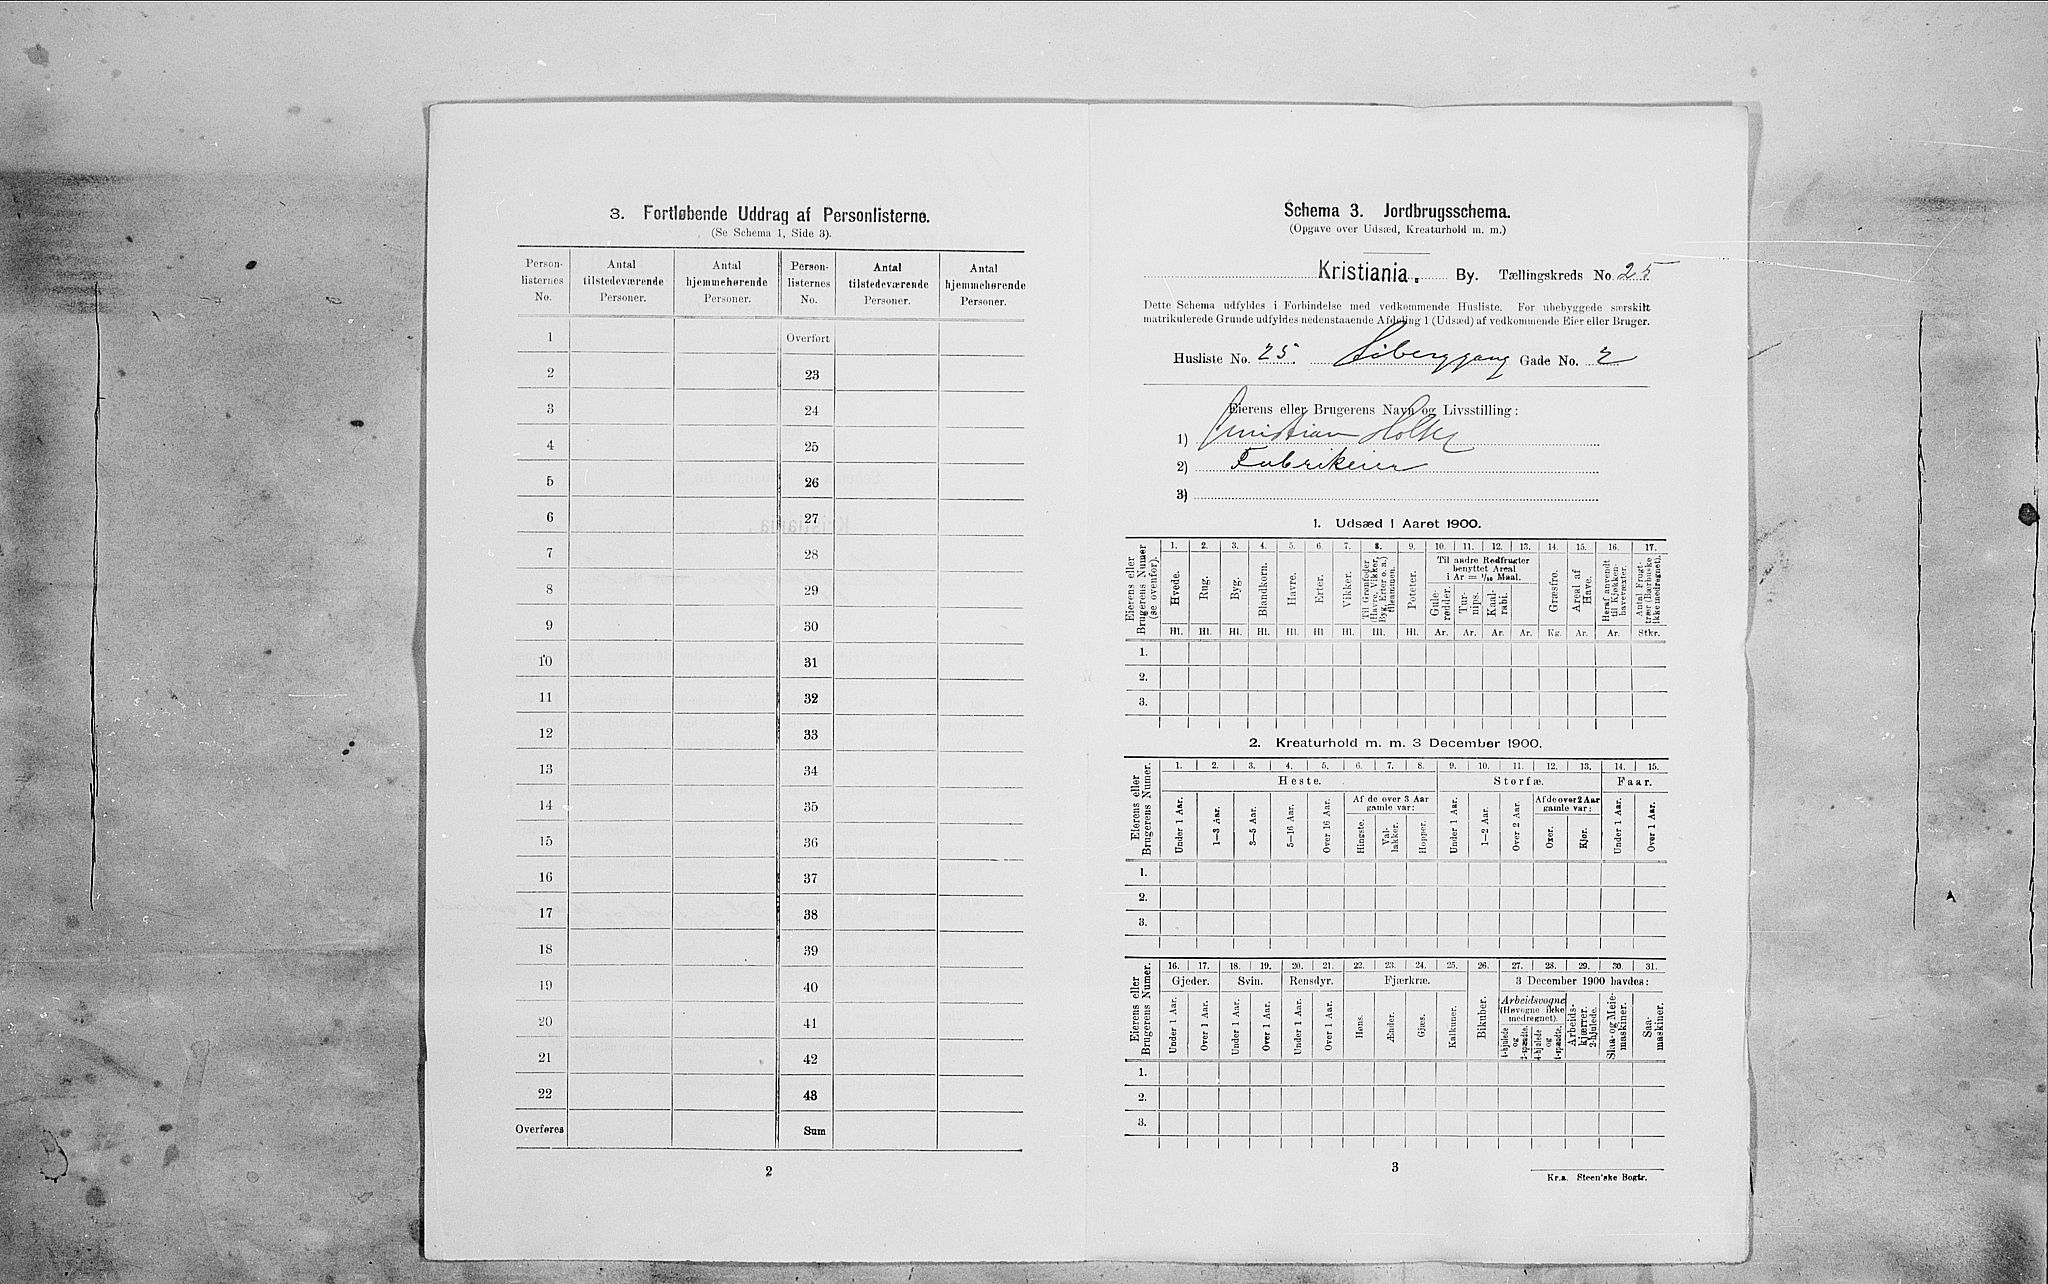 3. Fortløbende Uddrag af Personlisterne.
(Se Schema 1, Side 3).
Person-listernes No. Antal tilstedeværende Personer. Antal hjemmehørende Personer. Person-listernes No. Antal tilstedeværende Personer. Antal hjemmehørende Personer.
1 Overført
2 23
3 24
4 25
5 26
6 27
7 28
8 29
9 30
10 31
11 32
12 33
13 34
14 35
15 36
16 37
17 38
18 39
19 40
20 41
21 42
22 43
Overføres Sum
2
Schema 3. Jordbrugsschema.
(Opgave over Udsæd, Kreaturhold m. m.)
Kristiania. By. Tællingskreds No. 25
Dette Schema udfyldes i Forbindelse med vedkommende Husliste. For ubebyggede særskilt
matrikulerede Grunde udfyldes nedenstaaende Afdeling 1 (Udsæd) af vedkommende Eier eller Bruger.
Husliste No. 25. Gade No. 2
Eierens eller Brugerens Navn og Livsstilling:
1) Christian Holst
2) Fabrikeier
3)
1. Udsæd i Aaret 1900.
Eierens eller Brugerens Numer (se ovenfor).
1. 2. 3. 4. 5. 6. 7. 8. 9. 10. 11. 12. 13. 14. 15. 16. 17.
Til andre Rodfrugter benyttet Areal i Ar = 1/10 Maal.
Hvede. Rug. Byg. Blandkorn. Havre. Erter. Vikker. Til Grønfoder (Havre, Vikker, Byg, Erter o. a.) Poteter. Gule-rødder. Tur-nips. Kaal-rabi. Græsfrø. Areal af Have. Heraf anvendt til Kjøkken-havevæxter. Antal Frugt-trær (Bærbuske ikke medregnet).
Hl. Hl. Hl. Hl. Hl. Hl. Hl. Hl. Hl. Ar. Ar. Ar. Ar. Kg. Ar. Ar. Stkr.
1.
2.
3.
2. Kreaturhold m. m. 3 December 1900.
Eierens eller Brugerens Numer.
1. 2. 3. 4. 5. 6. 7. 8. 9. 10. 11. 12. 13. 14. 15.
Heste. Storfæ. Faar.
Af de over 3 Aar gamle var: Af de over 2 Aar gamle var:
Under 1 Aar. 1—3 Aar. 3—5 Aar. 5—16 Aar. Over 16 Aar. Hingste. Val-lakker. Hopper. Under 1 Aar. 1—2 Aar. Over 2 Aar. Oxer. Kjør. Under 1 Aar. Over 1 Aar.
1.
2.
3.
Eierens eller Brugerens Numer.
16. 17. 18. 19. 20. 21. 22. 23. 24. 25. 26. 27. 28. 29. 30. 31.
Gjeder. Svin. Rensdyr. Fjærkræ. 3 December 1900 havdes:
Arbeidsvogne (Høvogne ikke medregnet).
Under 1 Aar. Over 1 Aar. Under 1 Aar. Over 1 Aar. Under 1 Aar. Over 1 Aar. Høns. Ænder. Gjæs. Kalkuner. Bikuber. 4-hjulede og 2-spændte. 4-hjulede og 1-spændte. Arbeids-kjærrer, 2-hjulede. Slaa- og Meie-maskiner. Saa-maskiner.
1.
2.
3.
3
Kr.a. Steen'ske Bogtr.